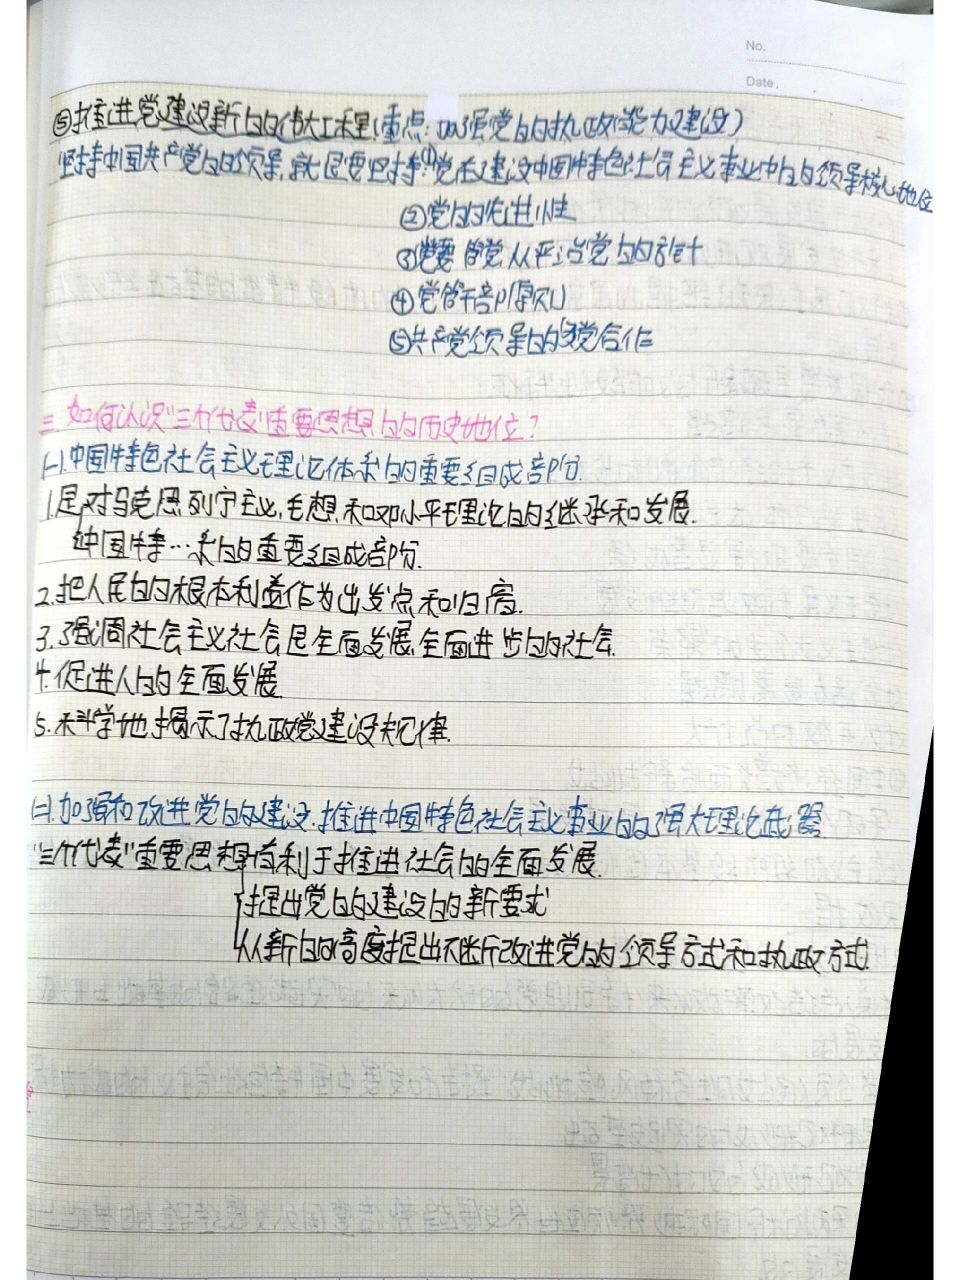 No.
Date.
⑤推进党建设新的伟大工程(重点:加强党的执政能力建设)
坚持中国共产党的领导,就是要坚持①党在建设中国特色社会主义事业中的领导核心地位
②党的先进性
③党要管党从严治党的方针
④党管干部原则
⑤共产党领导的多党合作
三.如何认识"三个代表"重要思想的历史地位?
(一).中国特色社会主义理论体系的重要组成部分.
1.是对马克思列宁主义,毛想,和邓小平理论的继承和发展.
中国特…系的重要组成部份.
2.把人民的根本利益作为出发点和归宿.
3.强调社会主义社会是全面发展,全面进步的社会.
4.促进人的全面发展.
5.科学地揭示了执政党建设规律.
(二).加强和改进党的建设.推进中国特色社会主义事业的强大理论武器
"三个代表"重要思想有利于推进社会的全面发展.
提出党的建设的新要求
从新的高度提出不断改进党的领导方式和执政方式.